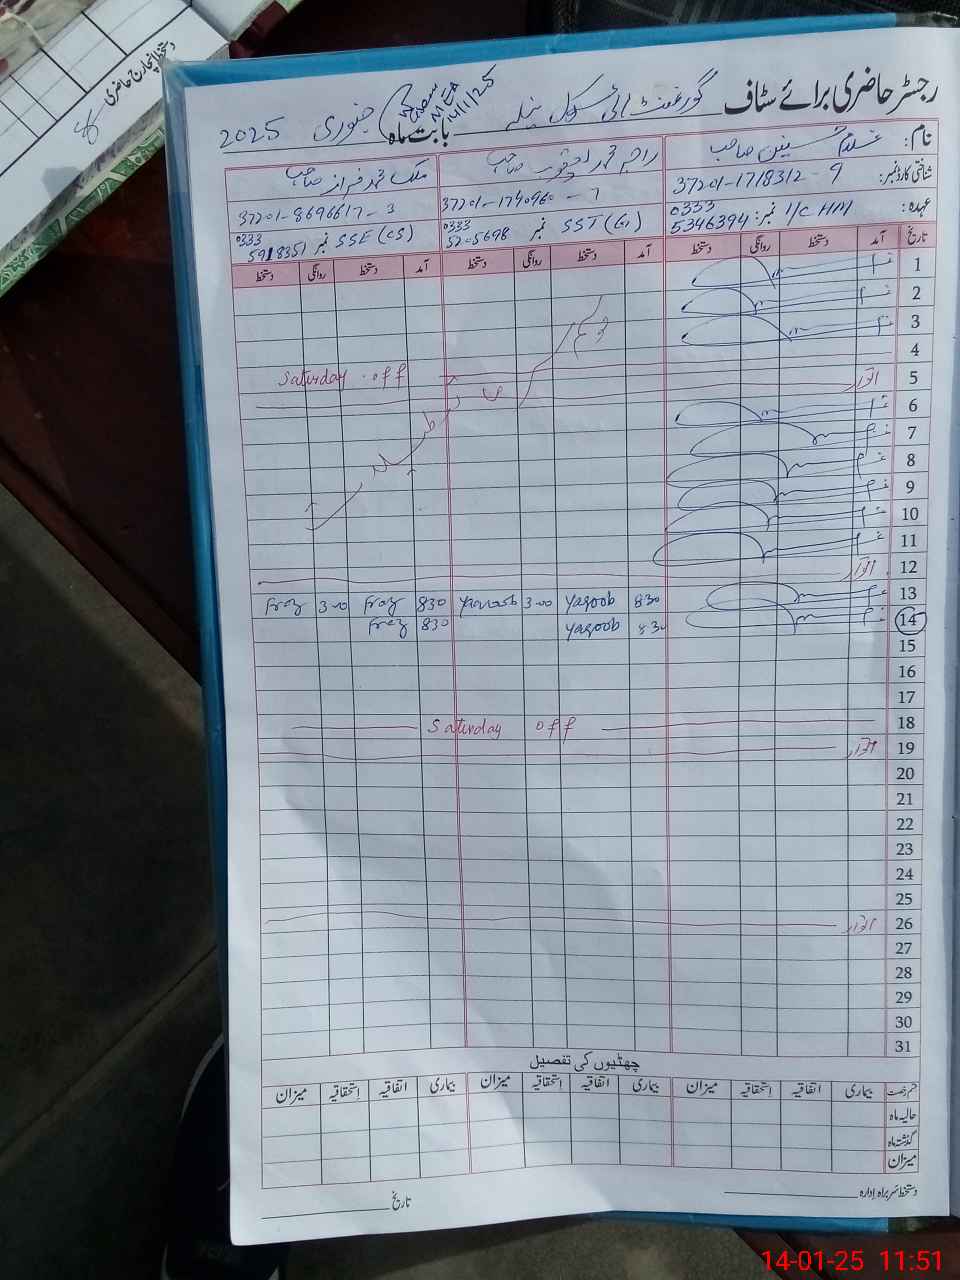 دستخط انچارج حاضری
رجسٹر حاضری برائے سٹاف گورنمنٹ ہائی سکول بابت ماہ جنوری 2025
MEA
14/1/25
نام: غلام صاحب راجہ محمد یعقوب صاحب ملک محمد فراز صاحب
شناختی کارڈ نمبر: 37201-1718312-9 37201-1790960-7 37201-8696617-3
عہدہ: I/C HM نمبر 0333 5346394 SST (G) نمبر 0333 5205698 SSE (CS) نمبر 0333 5918351
تاریخ آمد دستخط روانگی دستخط آمد دستخط روانگی دستخط آمد دستخط روانگی دستخط
1
2
3
4
Saturday off
5 اتوار
6
7
8
9
10
11
12 اتوار
13 830 Yaqoob 3-00 Yaqoob 830 Fraz 3-00 Fraz
14 830 Yaqoob 830 Fraz
15
16
17
18 Saturday off
19 اتوار
20
21
22
23
24
25
26 اتوار
27
28
29
30
31
چھٹیوں کی تفصیل
قسم رخصت بیماری اتفاقیہ استحقاقیہ میزان بیماری اتفاقیہ استحقاقیہ میزان بیماری اتفاقیہ استحقاقیہ میزان
حالیہ ماہ
گذشتہ ماہ
میزان
دستخط سربراہ ادارہ تاریخ
14-01-25 11:51